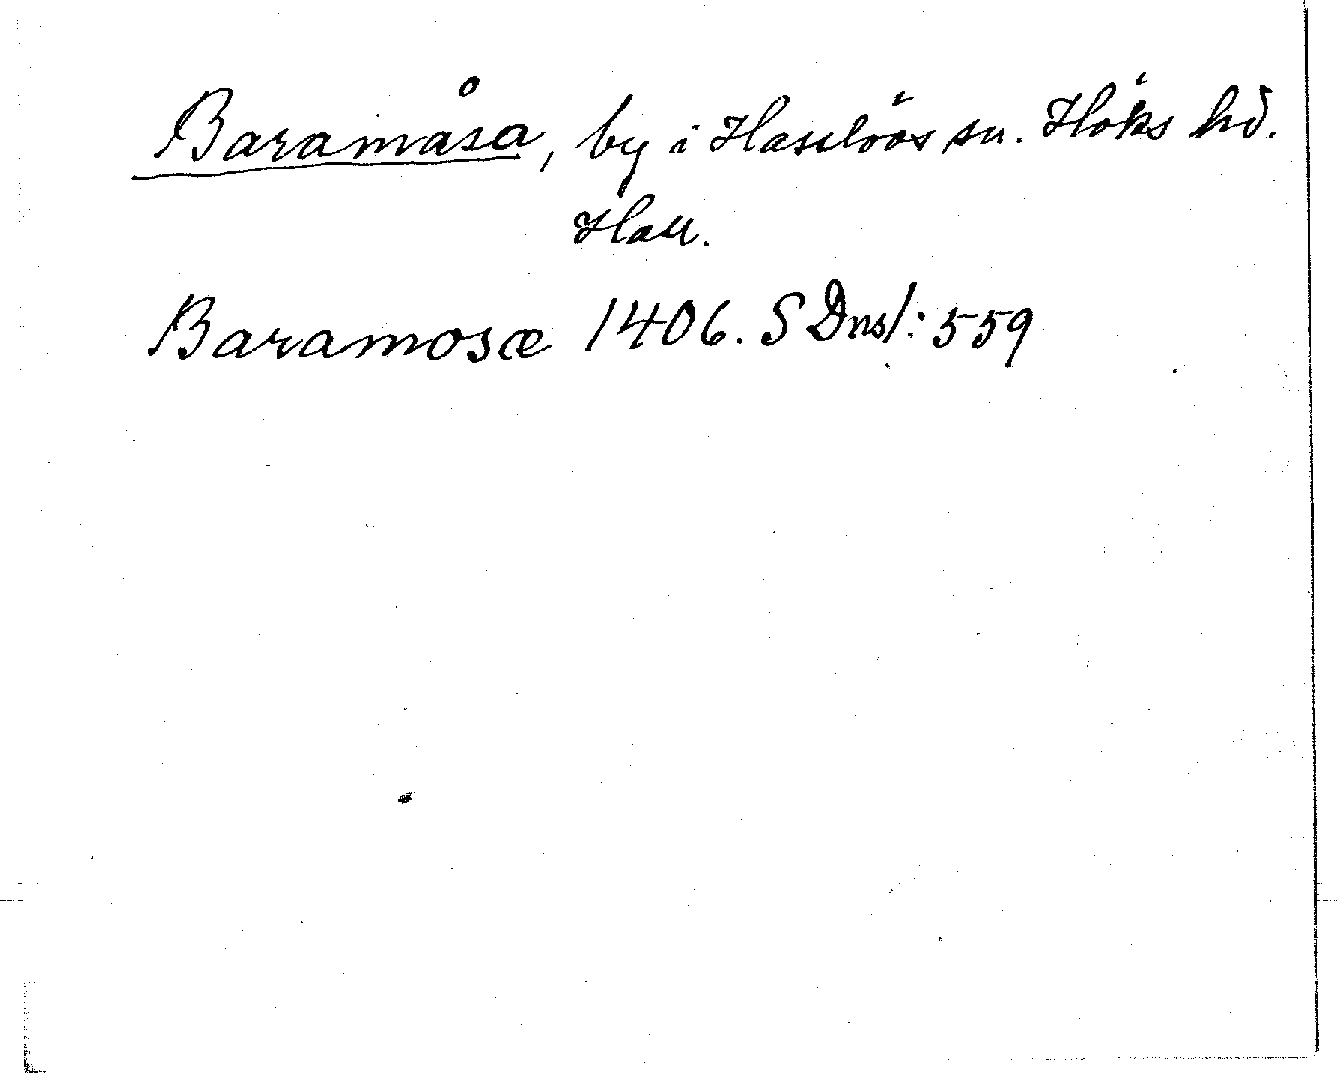 Baramåsa, by i Hasslövs sn. Höks hd.
Hall.
Baramosæ 1406. SDns 1: 559